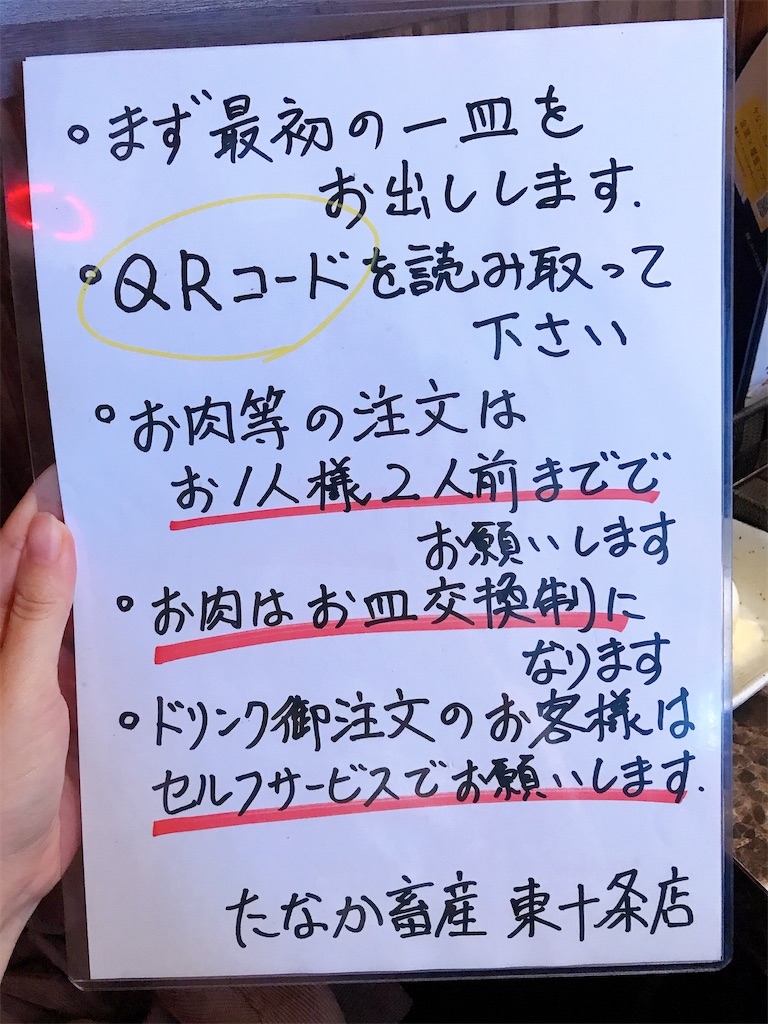 ○まず最初の一皿を
お出しします.
○QRコードを読み取って
下さい
○お肉等の注文は
お1人様2人前までで
お願いします
○お肉はお皿交換制に
なります
○ドリンク御注文のお客様は
セルフサービスでお願いします.
たなか畜産 東十条店